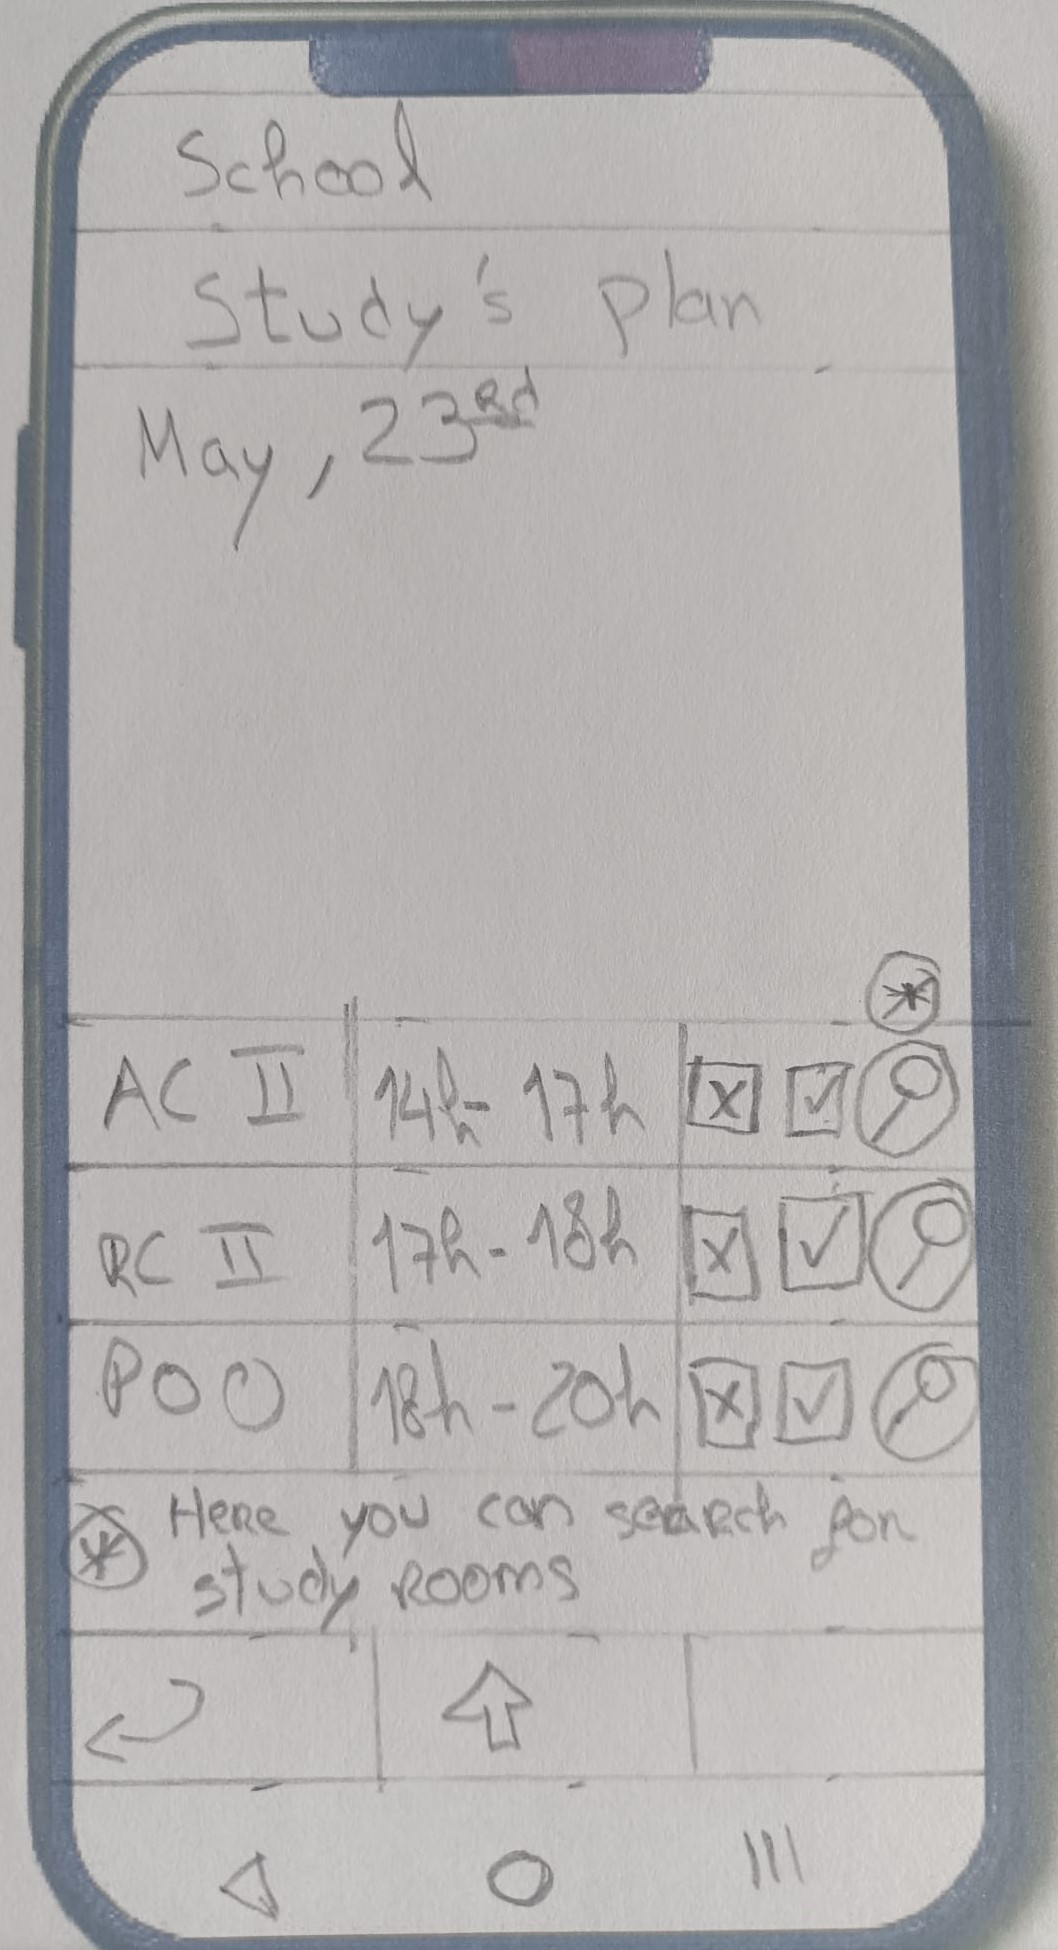 School
Study's plan
May, 23rd
*
AC II 14h- 17h x
RC II 17h - 18h x
POO 18h - 20h x
* Here you can search for
study rooms